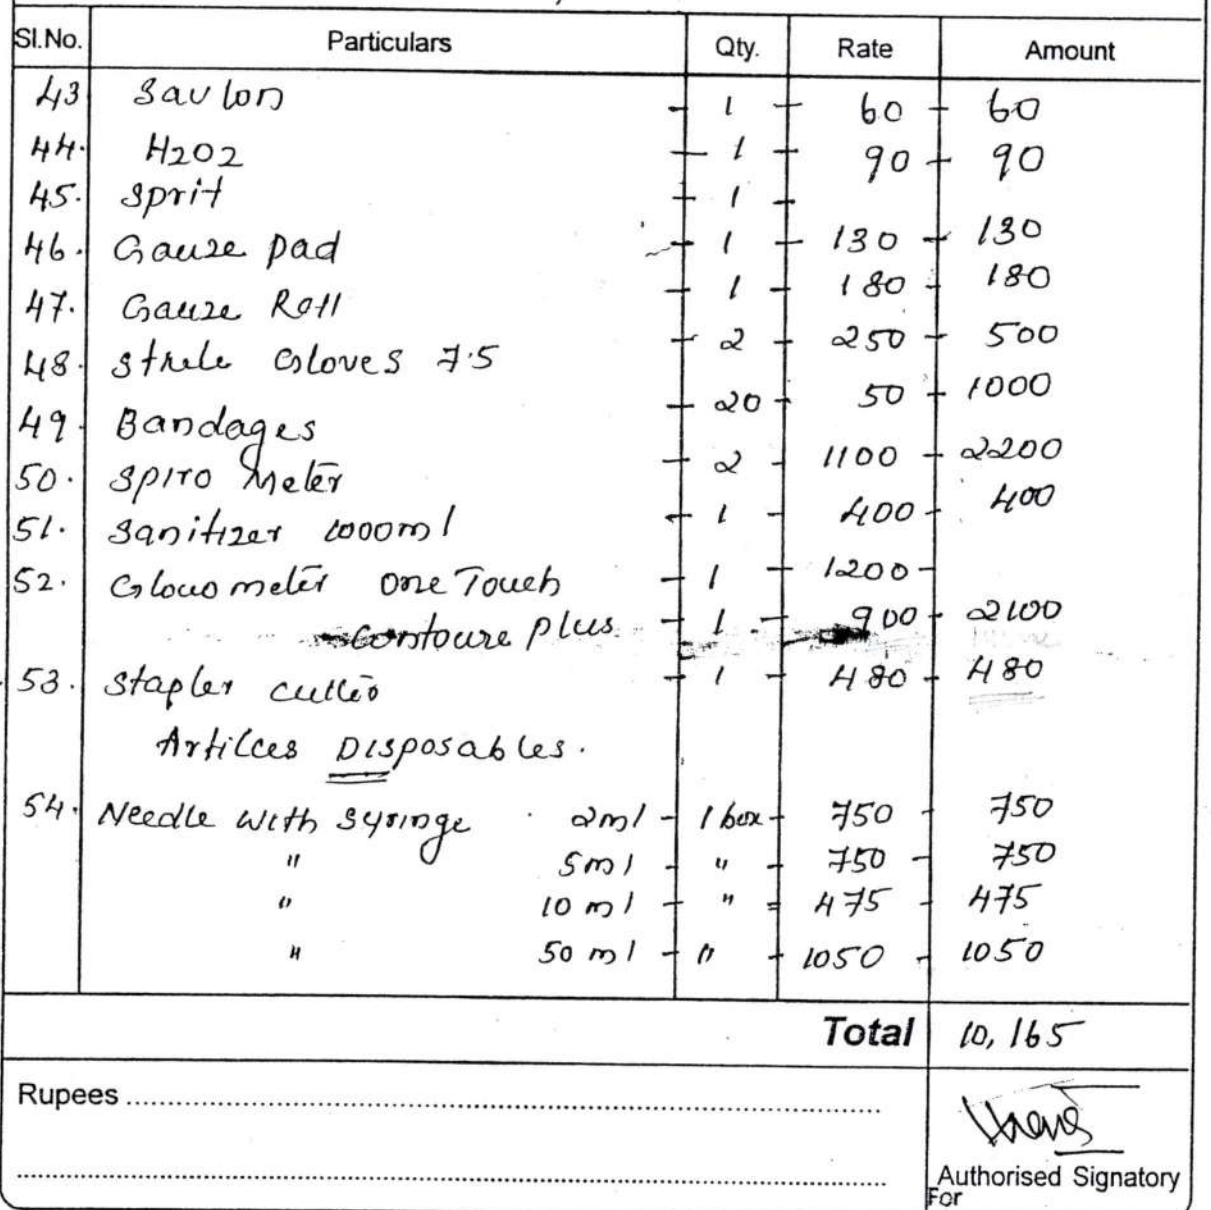 Sl.No. Particulars Qty. Rate Amount
43 Savlon - 1 - 60 - 60
44. H2O2 - 1 - 90 - 90
45. Sprit - 1 -
46. Gauze pad - 1 - 130 - 130
47. Gauze Roll - 1 - 180 - 180
48. Strele Gloves 7.5 - 2 - 250 - 500
49. Bandages - 20 - 50 - 1000
50. Spiro Meter - 2 - 1100 - 2200
51. Sanitizer 1000ml - 1 - 400 - 400
52. Gloucometer One Touch - 1 - 1200 -
Contoure plus - 1 - 900 - 2100
53. Stapler cutter - 1 - 480 - 480
Artilces Disposables.
54. Needle with Syringe 2ml - 1 box - 750 - 750
" 5ml - " - 750 - 750
" 10 ml - " - 475 - 475
" 50 ml - " - 1050 - 1050
Total 10,165
Rupees
Authorised Signatory
For